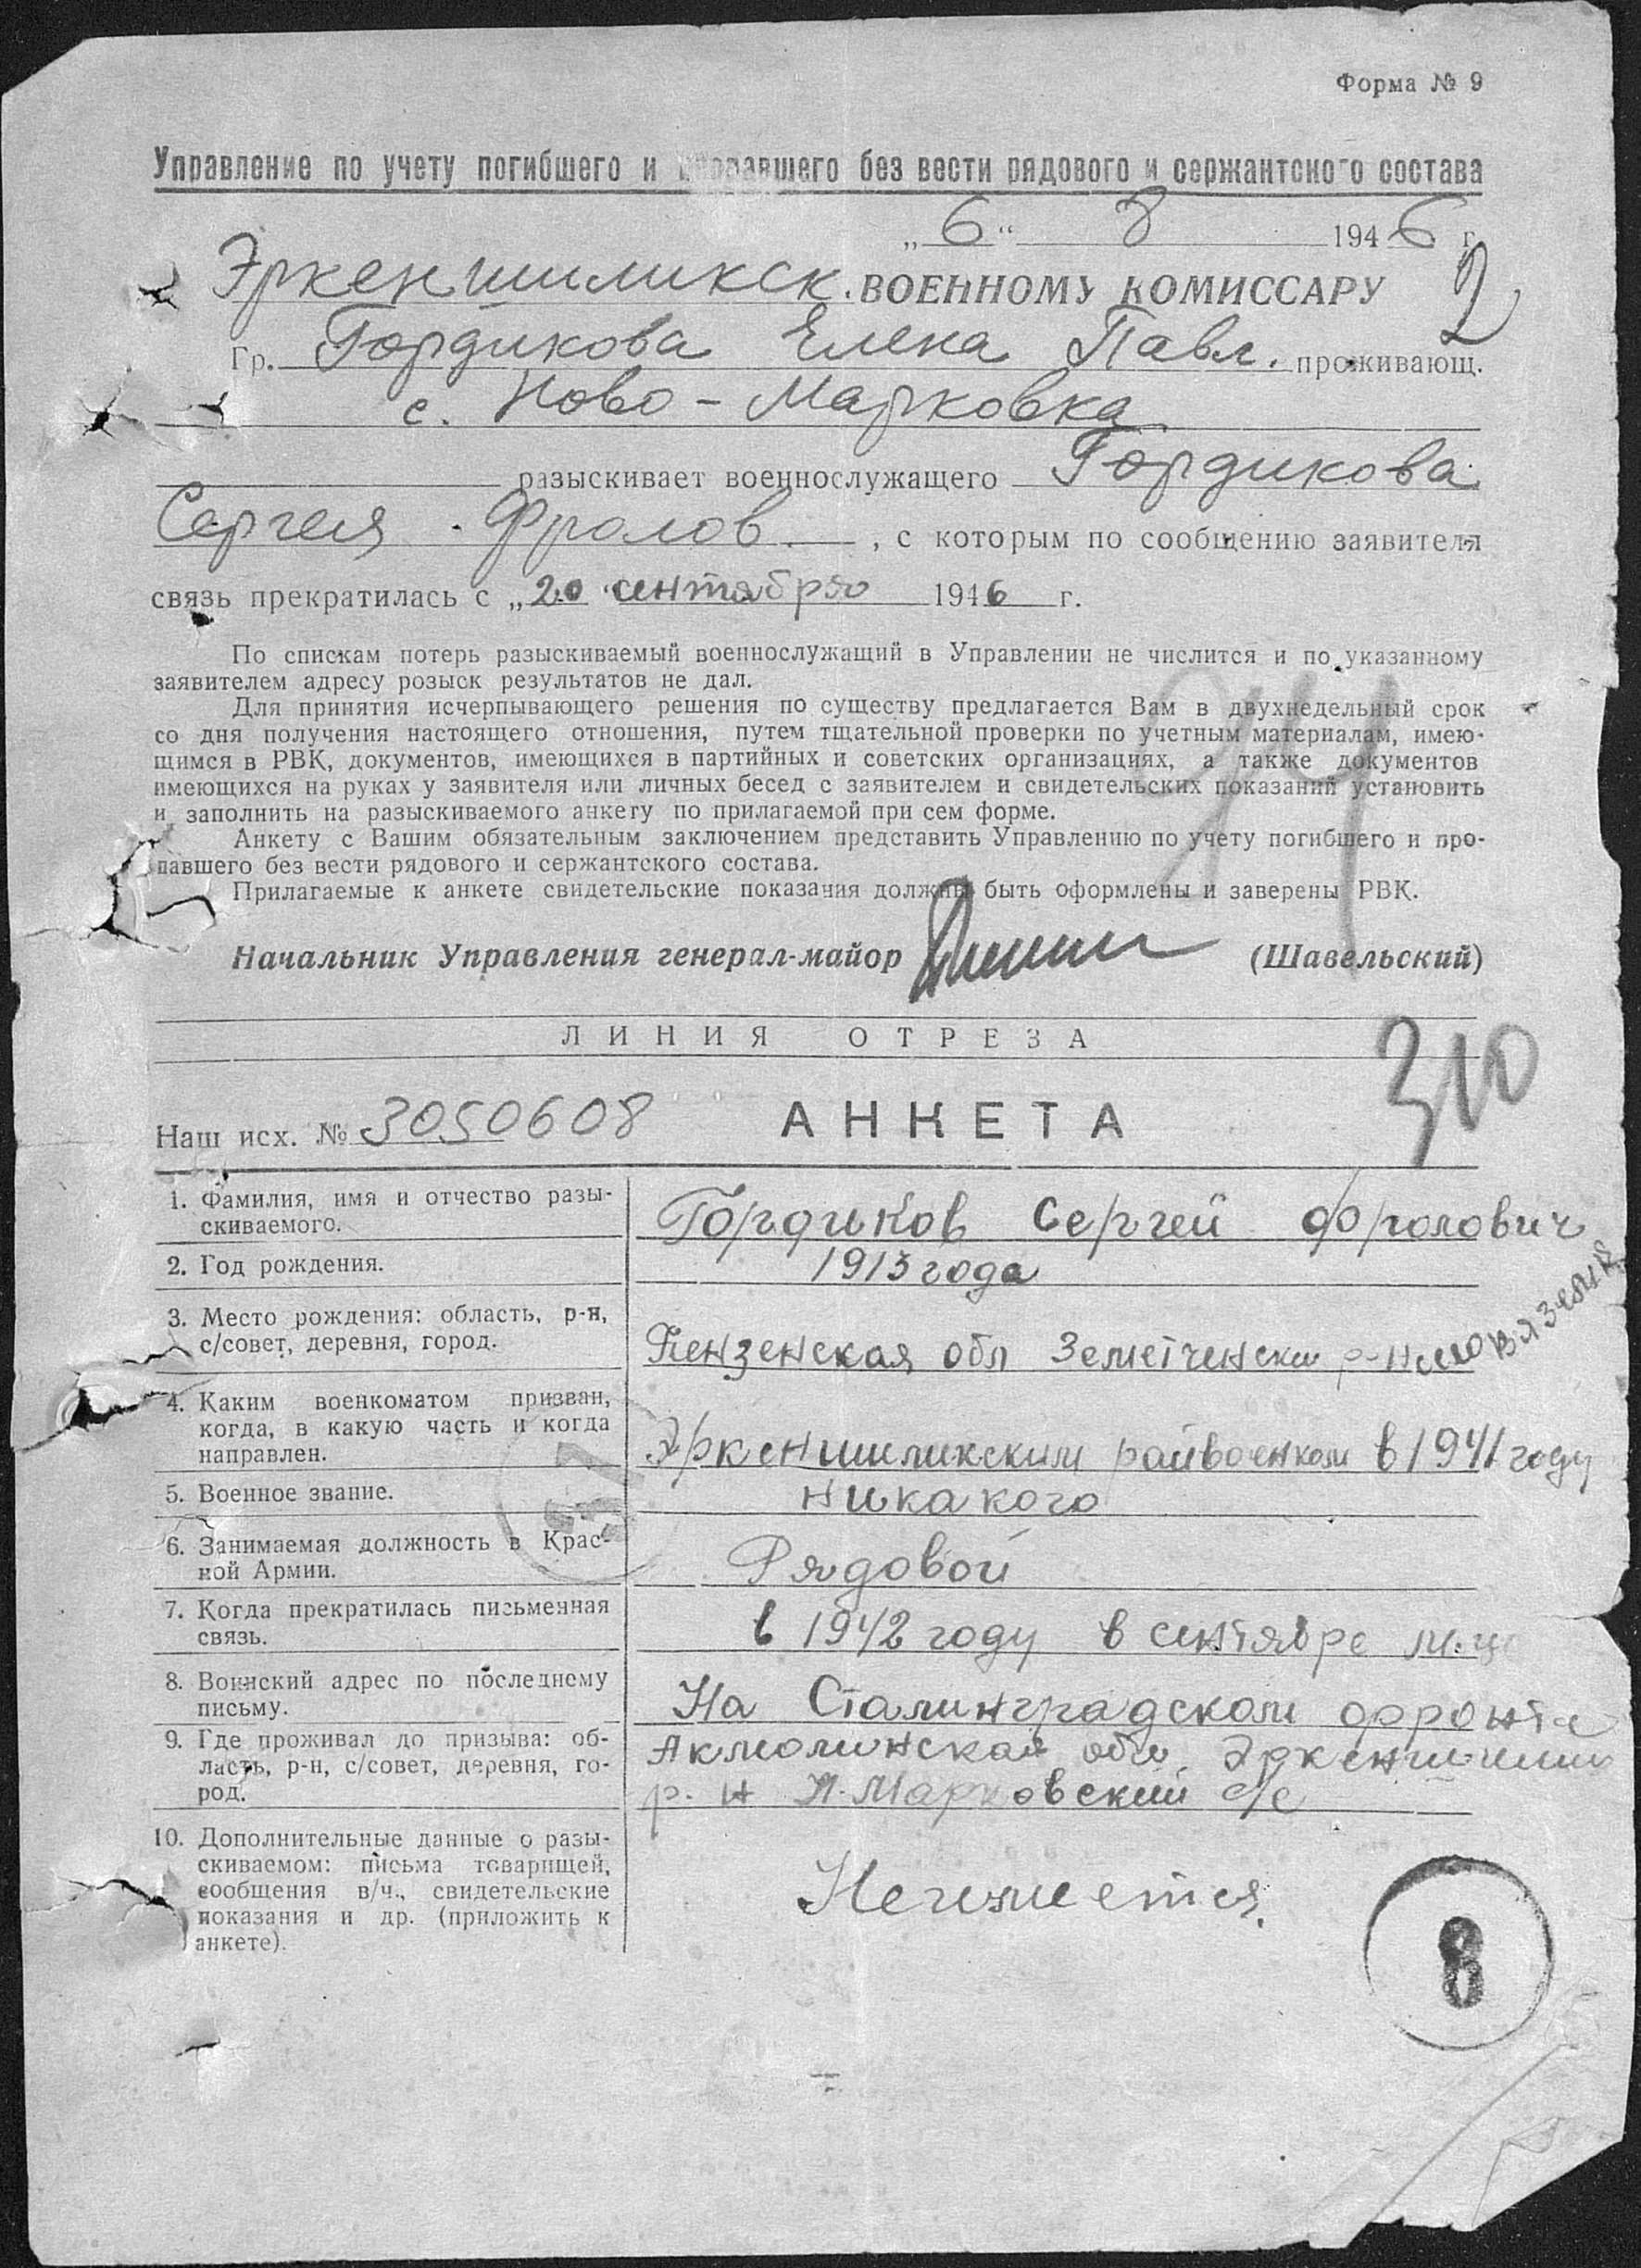 Форма № 9
Управление по учету погибшего и пропавшего без вести рядового и сержантского состава
„6“ 8 1946 г.
Эркеншиликск. ВОЕННОМУ КОМИССАРУ
2
Гр. Гордикова Елена Павл. проживающ.
с. Ново-Марковка
разыскивает военнослужащего Гордикова
Сергея Фролов. , с которым по сообщению заявителя
связь прекратилась с „20 сентября 1946 г.
По спискам потерь разыскиваемый военнослужащий в Управлении не числится и по указанному
заявителем адресу розыск результатов не дал.
Для принятия исчерпывающего решения по существу предлагается Вам в двухнедельный срок
со дня получения настоящего отношения, путем тщательной проверки по учетным материалам, имею-
щимся в РВК, документов, имеющихся в партийных и советских организациях, а также документов
имеющихся на руках у заявителя или личных бесед с заявителем и свидетельских показаний установить
и заполнить на разыскиваемого анкету по прилагаемой при сем форме.
Анкету с Вашим обязательным заключением представить Управлению по учету погибшего и про-
павшего без вести рядового и сержантского состава.
Прилагаемые к анкете свидетельские показания должны быть оформлены и заверены РВК.
Начальник Управления генерал-майор (Шавельский)
ЛИНИЯ ОТРЕЗА
310
Наш исх. № 3050608 АНКЕТА
1. Фамилия, имя и отчество разы-
скиваемого.
Гордиков Сергей Фролович
2. Год рождения.
1913 года
3. Место рождения: область, р-н,
с/совет, деревня, город.
Пензенская обл Земетченски р-н
4. Каким военкоматом призван,
когда, в какую часть и когда
направлен.
Эркеншиликским райвоенком в 1941 году
5. Военное звание.
Никакого
6. Занимаемая должность в Крас-
ной Армии.
Рядовой
7. Когда прекратилась письменная
связь.
в 1942 году в сентябре
8. Воинский адрес по последнему
письму.
На Сталинградском фронте
9. Где проживал до призыва: об-
ласть, р-н, с/совет, деревня, го-
род.
Акмолинская обл Эркеншилик
р-н Н-Марковский с/с
10. Дополнительные данные о разы-
скиваемом: письма товарищей,
сообщения в/ч., свидетельские
показания и др. (приложить к
анкете).
Неимеется.
8